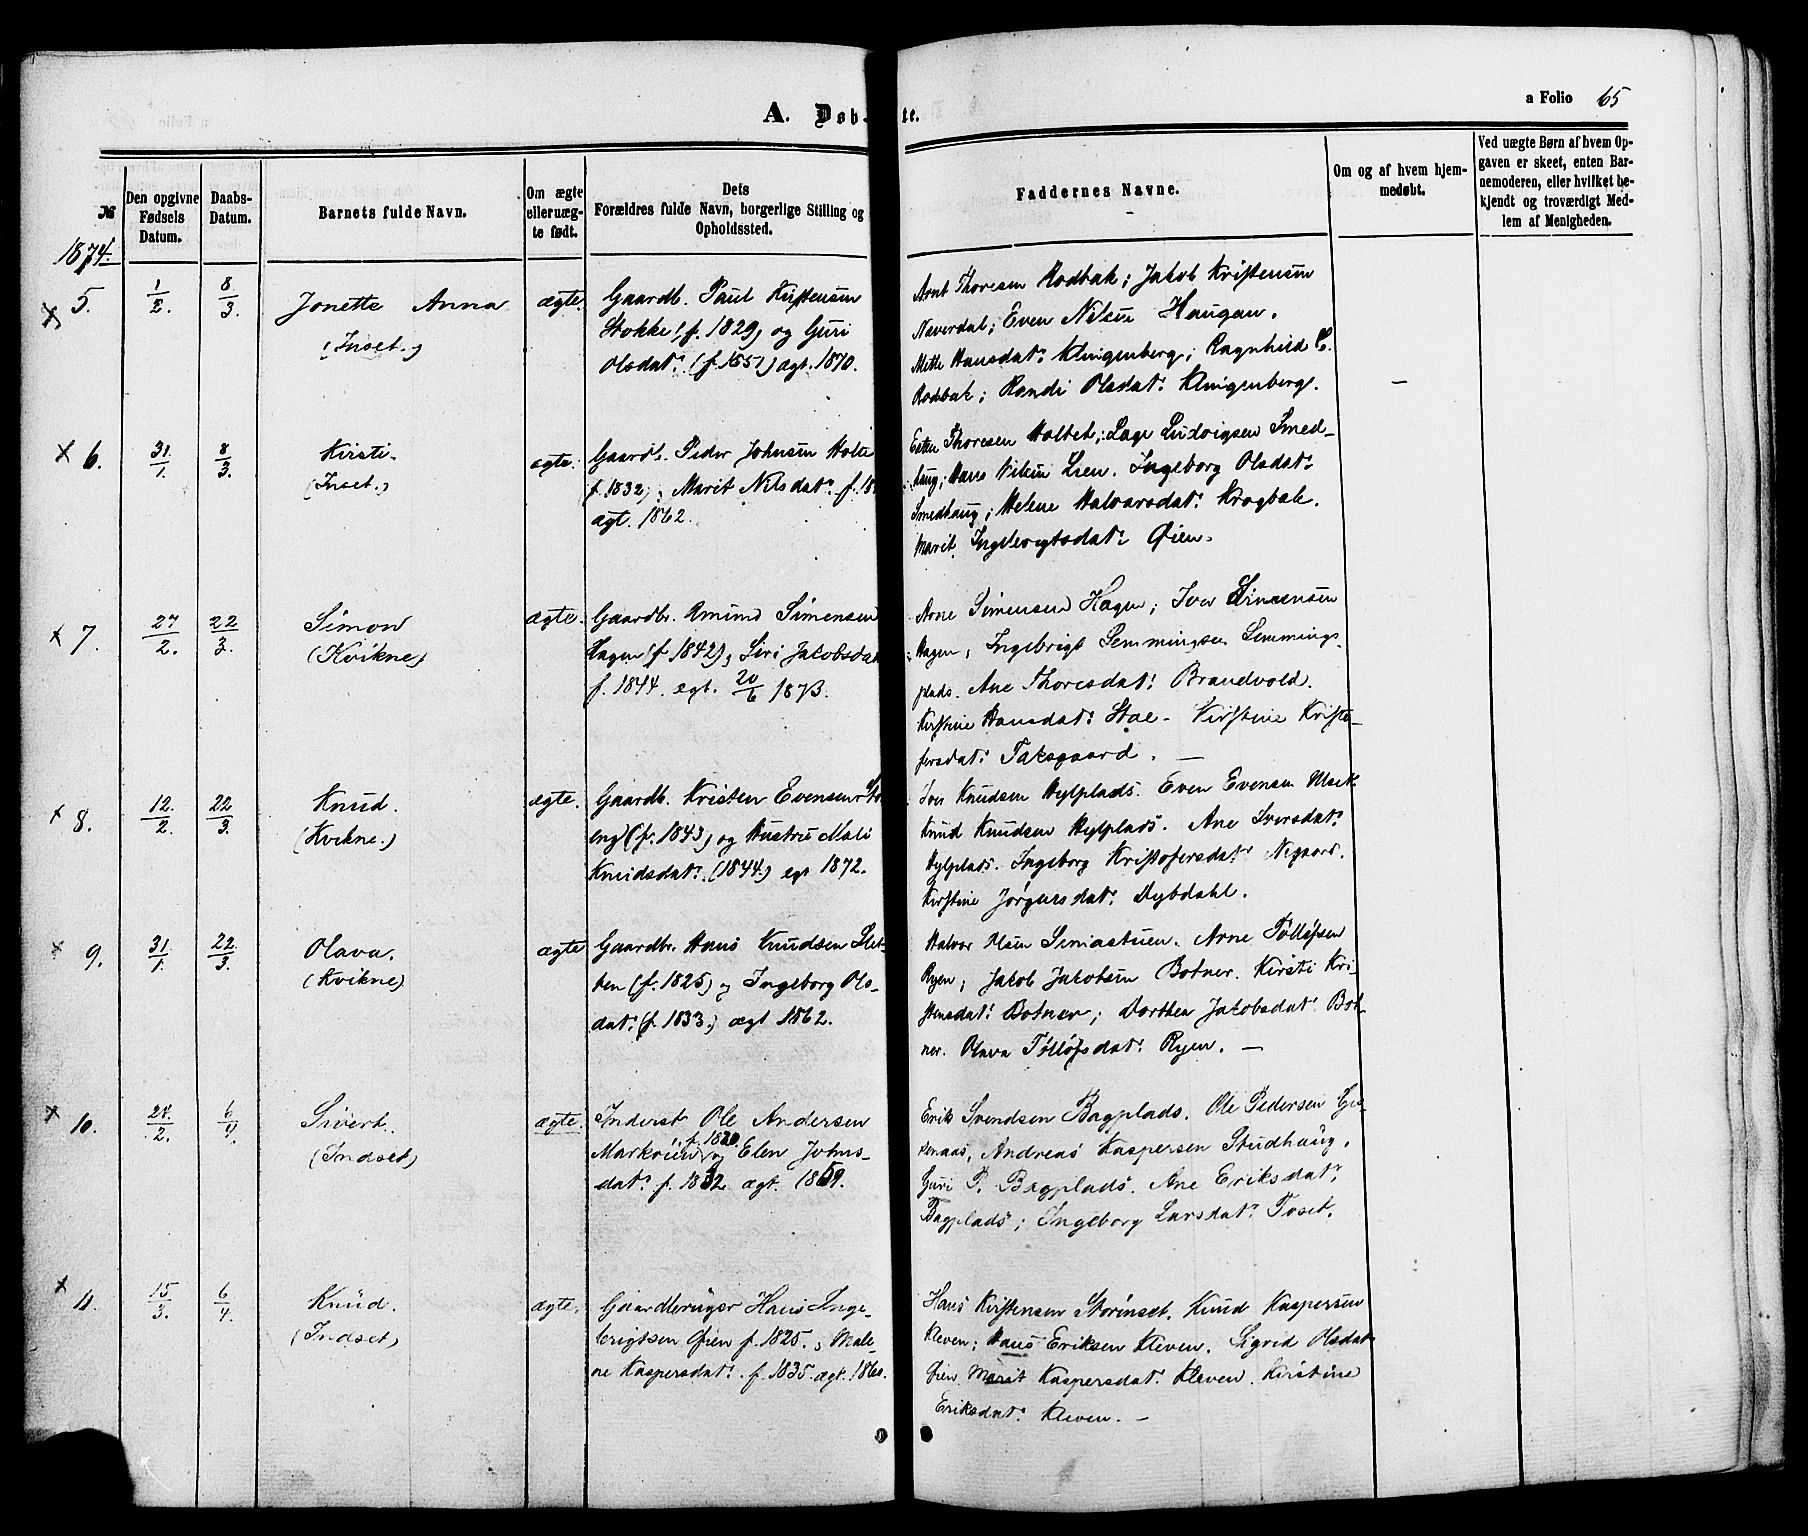 A. Døb- te.
a Folio 65
№
Den opgivne Fødsels Datum.
Daabs-Datum.
Barnets fulde Navn.
Om ægte eller uæg-te født.
Dets Forældres fulde Navn, borgerlige Stilling og Opholdssted.
Faddernes Navne.
Om og af hvem hjem-medøbt.
Ved uægte Børn af hvem Op-gaven er skeet, enten Bar-nemoderen, eller hvilket be-kjendt og troværdigt Med-lem af Menigheden.
1874.
x 5.
1/2.
8/3.
Jonette Anna
(Inset.)
ægte.
Gaardb. Paul Kristensen
Stokke (f. 1829) og Guri
Olsdat: (f. 1851) ægt. 1870.
Arnt Thoresen Rodbak; Jakob Kristensen
Næverdal; Even Nilsen Haugan.
Mette Hansdat: Klingenberg; Ragnhild C.
Rodbak; Randi Olsdat: Klingenberg.
—
x 6.
31/1.
8/3.
Kirsti.
(Inset.)
ægte.
Gaardb. Peder Johnsen Holte
f. 1832), Marit Nilsdat: f. 18
ægt. 1862.
Esten Thoresen Holtet; Lage Ludvigsen Smed-
haug; Hans Nilsen Lien. Ingeborg Olsdat:
Smedhaug; Helene Halvorsdat: Krogbak.
Marit Ingebrigtsdat: Øien.
x 7.
27/2.
22/3.
Simon
(Kvikne)
ægte.
Gaardbr. Amund Simensen
Hagen (f. 1842), Siri Jacobsdat
f. 1844. egt. 20/6 1873.
Arne Simensen Hagen; Iver Simensen
Hagen; Ingebrigt Semmingsen Semmings-
plads. Ane Thoresdat: Brandvold.
Kirstine Hansdat: Stae. Kirstine Kristo-
fersdat: Taksgaard. —
x 8.
12/2.
22/3.
Knud.
(Kvikne.)
ægte.
Gaardb. Kristen Evensen Sto
eng (f. 1843) og Hustru Mali
Knudsdat: (1844.) egt 1872.
Iver Knudsen Hylplads. Even Evensen Moet
Knud Knudsen Hylplads. Ane Iversdat:
Hylplads. Ingeborg Kristofersdat: Nygaard.
Kirstine Jørgensdat: Dybdahl.
x 9.
31/1.
22/3.
Olava.
(Kvikne)
ægte
Gaardbr. Hans Knudsen Slet-
ten (f. 1825) og Ingeborg Ols-
dat: (f. 1833.) ægt 1862.
Halvor Olsen Simastuen. Arne Tølløfsen
Ryen; Jakob Jakobsen Botner. Kirsti Kri-
stensdat: Botner; Dorthea Jakobsdat: Bot-
ner. Olava Tølløfsdat: Ryen. —
x 10.
28/2.
6/4.
Sivert.
(Indset)
ægte.
Inderst Ole Andersen
Markøien f. 1820. og Elen Johns-
dat: f. 1832. ægt. 1859.
Erik Svendsen Bagplads. Ole Pedersen Gra-
senaas, Andreas Kaspersen Studhaug.
Guri P. Bagplads. Ane Eriksdat:
Bagplads; Ingeborg Larsdat: Toset.
x 11.
15/3.
6/4.
Knud.
(Indset)
ægte.
Gaardbruger Hans Inge-
brigtsen Øien f. 1825. og Male-
ne Kaspersdat: f. 1835 ægt. 1860.
Hans Kristensen Storinset. Knud Kaspersen
Kleven; Hans Eriksen Kleven. Sigrid Olsdat
Øien. Marit Kaspersdat: Kleven. Kirstine
Eriksdat: Kleven. —